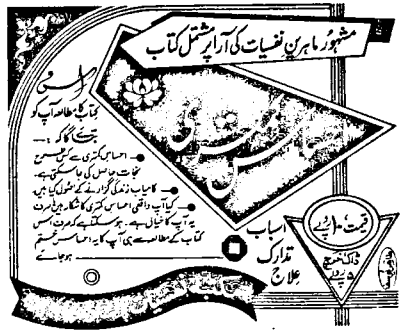 مشہور ماہرینِ نفسیات کی آرا پر مشتمل کتاب
احساسِ کمتری
اس
کتاب کا مطالعہ آپ کو
بتائے گا کہ :—
احساسِ کمتری سے کس طرح
نجات حاصل کی جاسکتی ہے۔
کامیاب زندگی گزارنے کے اصول کیا ہیں
کیا آپ واقعی احساسِ کمتری کا شکار ہیں یا صرف
یہ آپ کا خیال ہے۔ ہوسکتا ہے کہ صرف اس
کتاب کے مطالعہ سے ہی آپ کا یہ احساس ختم
ہوجائے
اسباب
تدارک
علاج
قیمت ۱۰ روپے
ڈاک خرچ
۵ روپے